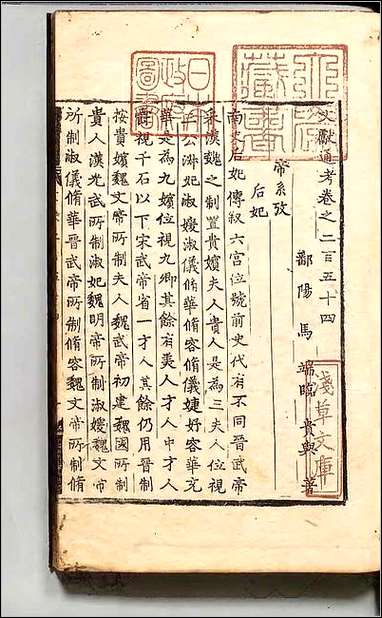 文獻通考卷之二百五十四
鄱陽馬端臨貴與著
帝系攷
后妃
南史后妃傳叙六宮位號前史代有不同晉武帝
采漢魏之制置貴嬪夫人貴人是為三夫人位視
三公淑妃淑媛淑儀修華修容修儀婕妤容華充
華是為九嬪位視九卿其餘有羙人才人中才人
爵視千石以下宋武帝省二才人其餘仍用晉制
按貴嬪魏文帝所制夫人魏武帝初建魏國所制
貴人漢光武所制淑妃魏明帝所制淑媛魏文帝
所制淑儀脩華晉武帝所制脩容魏文帝所制脩
淺草文庫
日本
政府
圖書